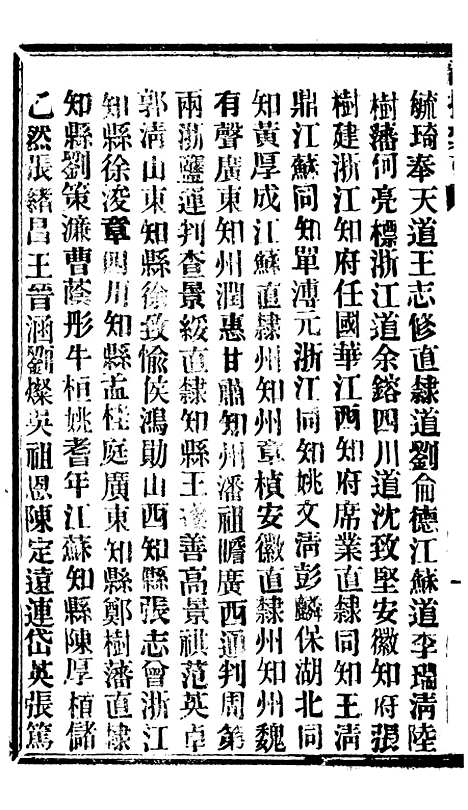 毓琦奉天道王志修直隸道劉倫德江蘇道李瑞淸陸
樹藩何亮標浙江道余鎔四川道沈致堅安徽知府張
樹建浙江知府任國華江西知府席業直隸同知王淸
鼎江蘇同知單溥元浙江同知姚文淸彭麟保湖北同
知黃厚成江蘇直隸州知州章楨安徽直隸州知州魏
有聲廣東知州潤惠甘肅知州潘祖瞻廣西通判周第
兩浙鹽運判查景綏直隸知縣王善高景祺范英卓
郭淸山東知縣徐致愉侯鴻勛山西知縣張志曾浙江
知縣徐浚章四川知縣孟桂庭廣東知縣鄭樹藩直隸
知縣劉策濂曹蔭彤牛桓姚耆年江蘇知縣陳厚栢儲
乙然張緒昌王晉涵劉燦英祖恩陳定遠連岱英張篤